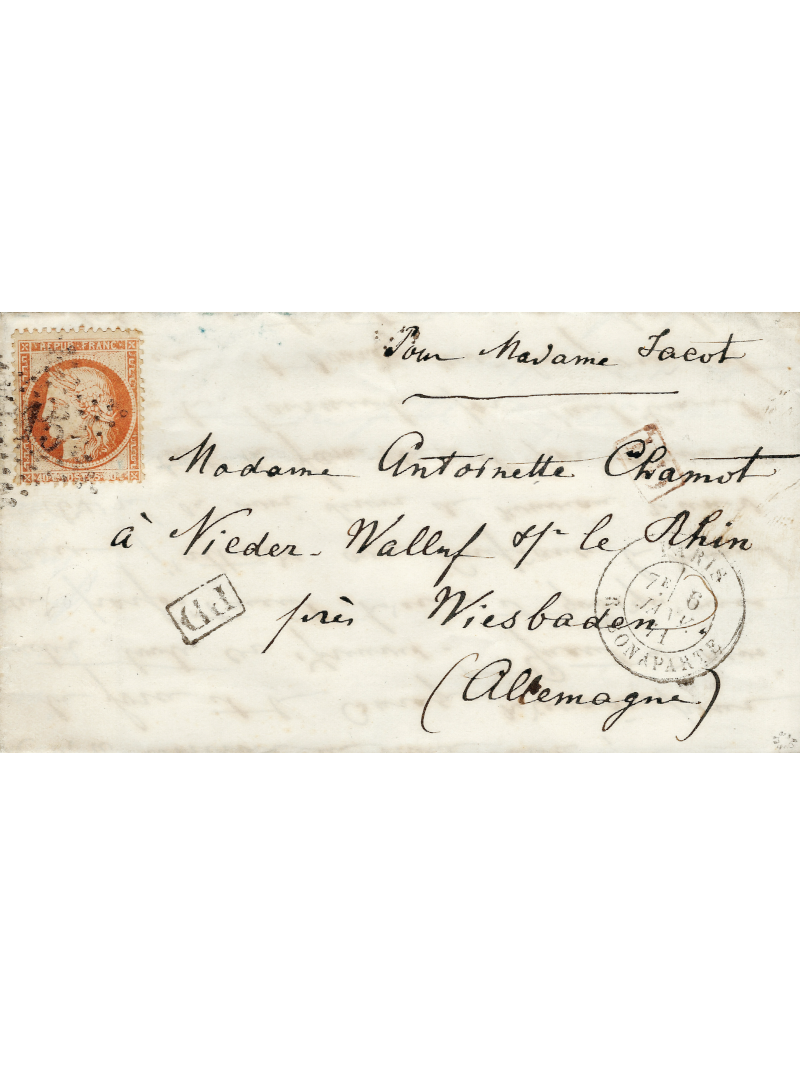 REPUB FRANC
Pour Madame Jacot
Madame Antoinette Chamot
à Nieder-Walluf s/ le Rhin
près Wiesbaden
(Allemagne)
PD
PARIS
7E 6
JANV.
71
R. BONAPARTE